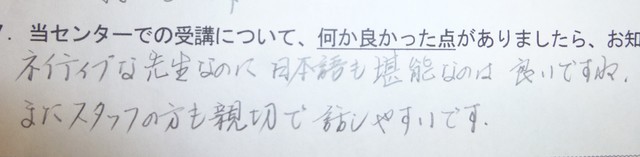 7. 当センターでの受講について、何か良かった点がありましたら、お知
ネイティブな先生なのに日本語も堪能なのは良いですね.
またスタッフの方も親切で話しやすいです.